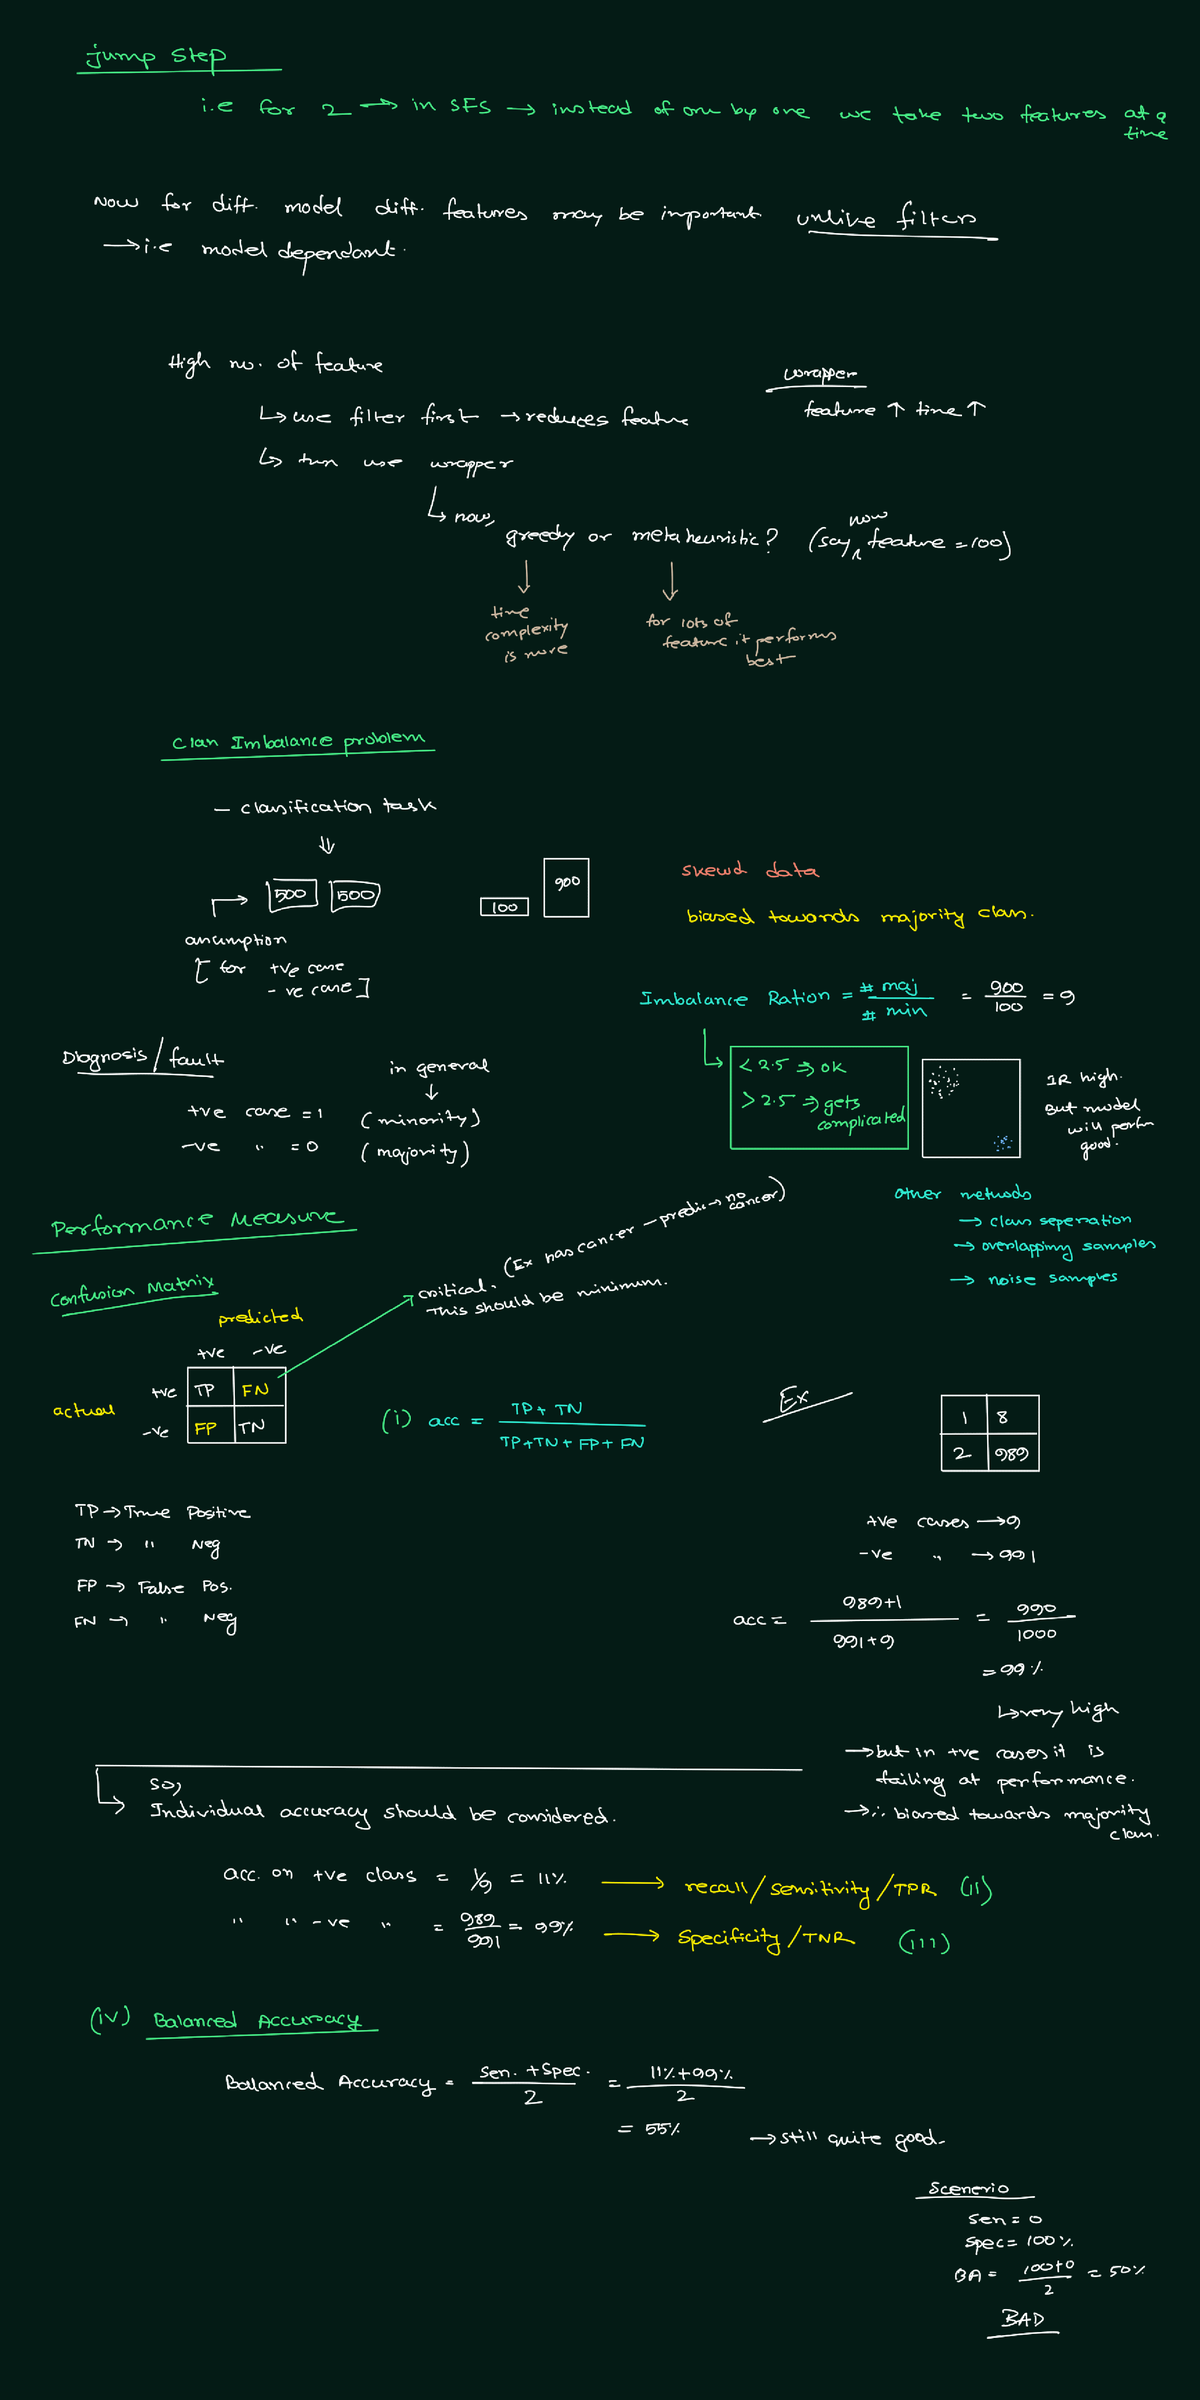 jump step
i.e for 2 → in SFS → instead of one by one we take two features at a
time
Now for diff. model diff. features may be important unlike filters
→ i.e model dependant.
High no. of feature
↳ use filter first → reduces feature
↳ then use wrapper
wrapper
feature ↑ time ↑
↳ now, greedy or metaheuristic? (say, now feature = 100)
time
complexity
is more
for lots of
feature it performs
best
Class Imbalance problem
- classification task
⇓
500 500
100
900
assumption
[for +ve case
-ve case]
skewd data
biased towards majority class.
Imbalance Ration = # maj / # min = 900/100 = 9
< 2.5 ⇒ OK
> 2.5 ⇒ gets
complicated
IR high.
But model
will perfm
good.
Diagnosis/fault
in general
↓
+ve case = 1 (minority)
-ve " = 0 (majority)
other methods
→ class seperation
→ overlapping samples
→ noise samples
Performance Measure
Confusion Matrix
critical. (Ex has cancer - predic → no cancer)
This should be minimum.
predicted
+ve -ve
actual
+ve TP FN
-ve FP TN
(i) acc = TP + TN / TP + TN + FP + FN
TP → True Positive
TN → " Neg
FP → False Pos.
FN → " Neg
Ex
1 8
2 989
+ve cases → 9
-ve " → 991
acc = 989+1 / 991+9 = 990/1000
= 99%
↳ very high
→ but in +ve cases it is
failing at performance.
→ ∴ biased towards majority
class.
so,
Individual accuracy should be considered.
acc. on +ve class = 1/9 = 11% → recall/sensitivity/TPR (ii)
" " -ve " = 989/991 = 99% → Specificity/TNR (iii)
(iv) Balanced Accuracy
Balanced Accuracy = Sen. + Spec. / 2 = 11% + 99% / 2
= 55% → still quite good.
Scenerio
Sen = 0
Spec = 100%
BA = 100+0 / 2 = 50%
BAD